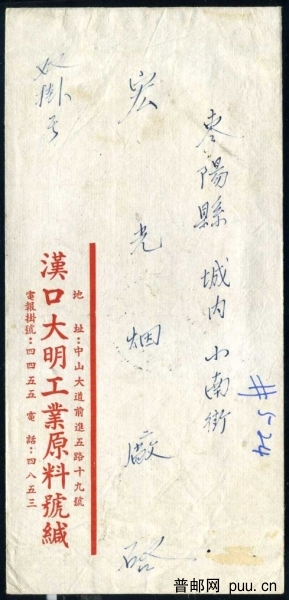 棗陽縣城内小南街
#5-24
宏光烟廠 啓
地址:中山大道前進五路十九號
漢口大明工業原料號緘
電報掛號:四四五五 電話:四八五三
普邮网 puu.cn